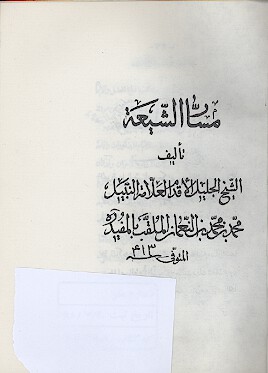 مسار الشيعة
تأليف
الشيخ الجليل الاقدم العلامة النبيل
محمد بن محمد بن النعمان الملقب بالمفيد ره
المتوفى سنة ٤١٣